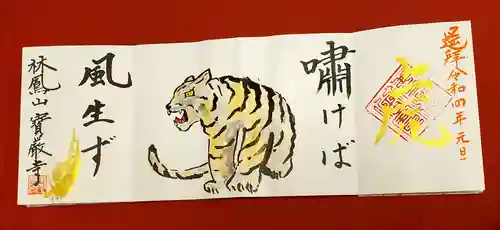 遥拝令和四年 元旦
虎
嘯けば
風生ず
林鳳山 寳巌寺